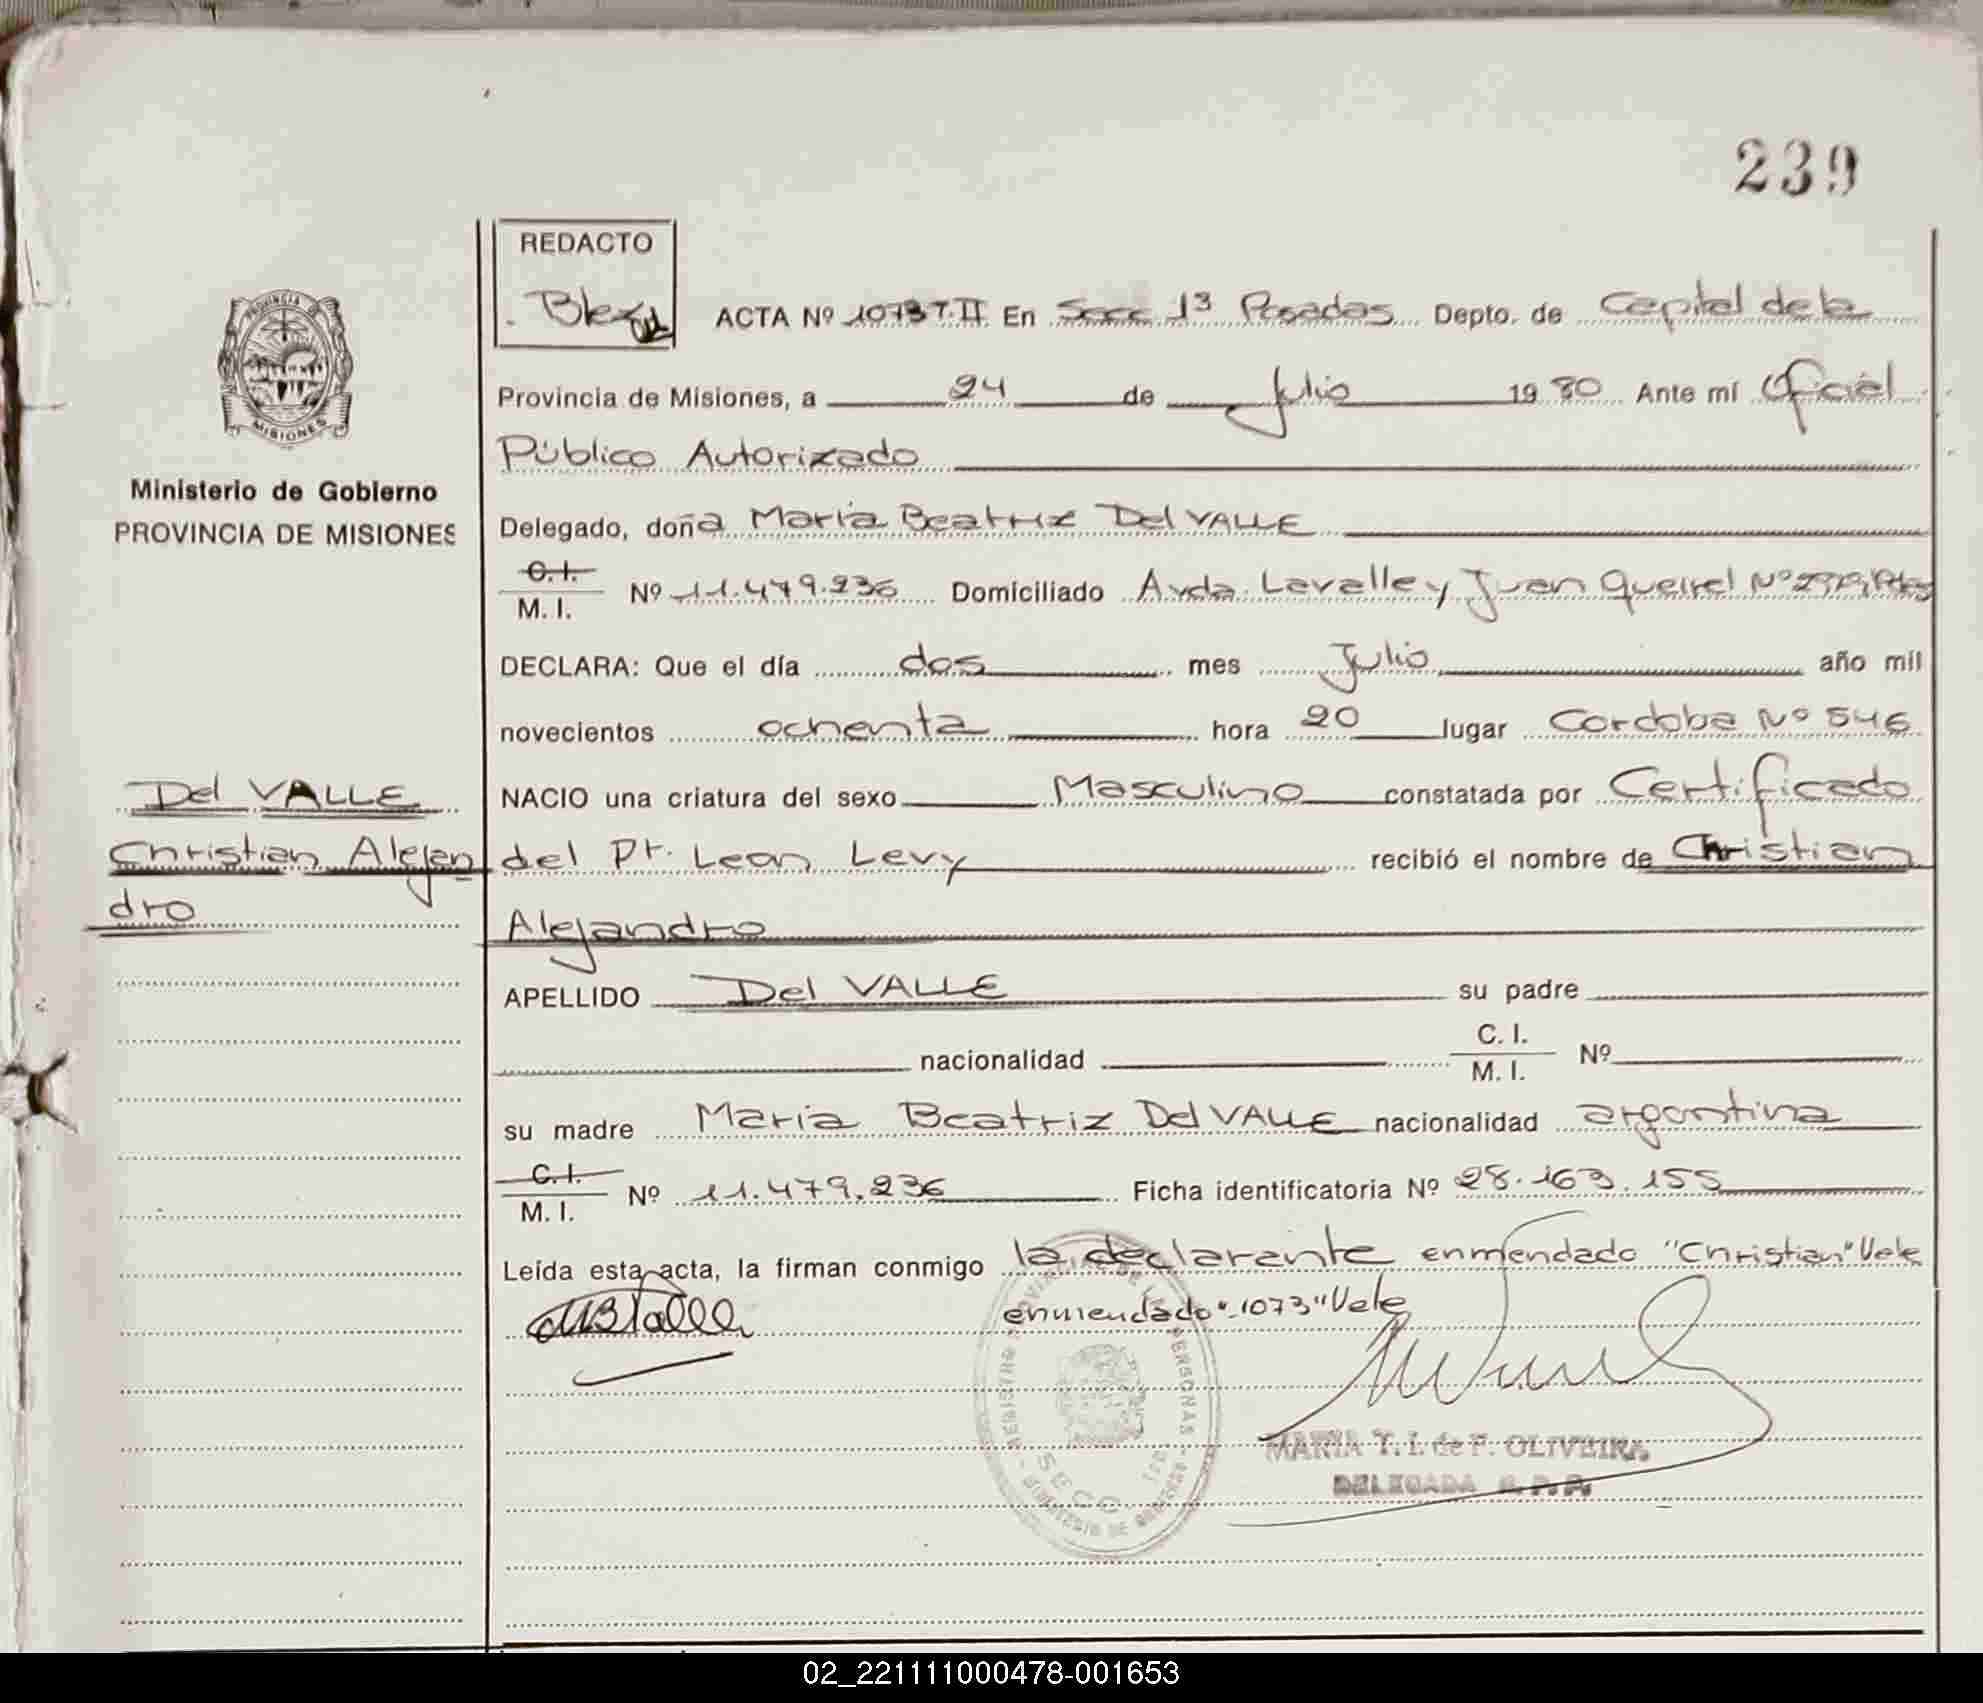 239
REDACTO
ACTA Nº 1073 T. II En Secc 1ª Posadas Depto. de Capital de la
PROVINCIA
MISIONES
Provincia de Misiones, a 24 de Julio 1980 Ante mí Oficial
Público Autorizado
Ministerio de Gobierno
PROVINCIA DE MISIONES
Delegado, doña María Beatriz Del VALLE
C. I.
M. I. Nº 11.479.236 Domiciliado Avda. Lavalle y Juan Queirel Nº
DECLARA: Que el día dos mes Julio año mil
novecientos ochenta hora 20 lugar Cordoba Nº 546
Del VALLE
NACIO una criatura del sexo Masculino constatada por Certificado
Christian Alejan
del Dr. Leon Levy recibió el nombre de Christian
dro
Alejandro
APELLIDO Del VALLE su padre
nacionalidad C. I. M. I. Nº
su madre María Beatriz Del VALLE nacionalidad argentina
C. I.
M. I. Nº 11.479.236 Ficha identificatoria Nº 28.163.155
Leída esta acta, la firman conmigo la declarante enmendado "Christian" Vale
enmendado "1073" Vale
MARIA T. I. de F. OLIVEIRA
DELEGADA
02_221111000478-001653